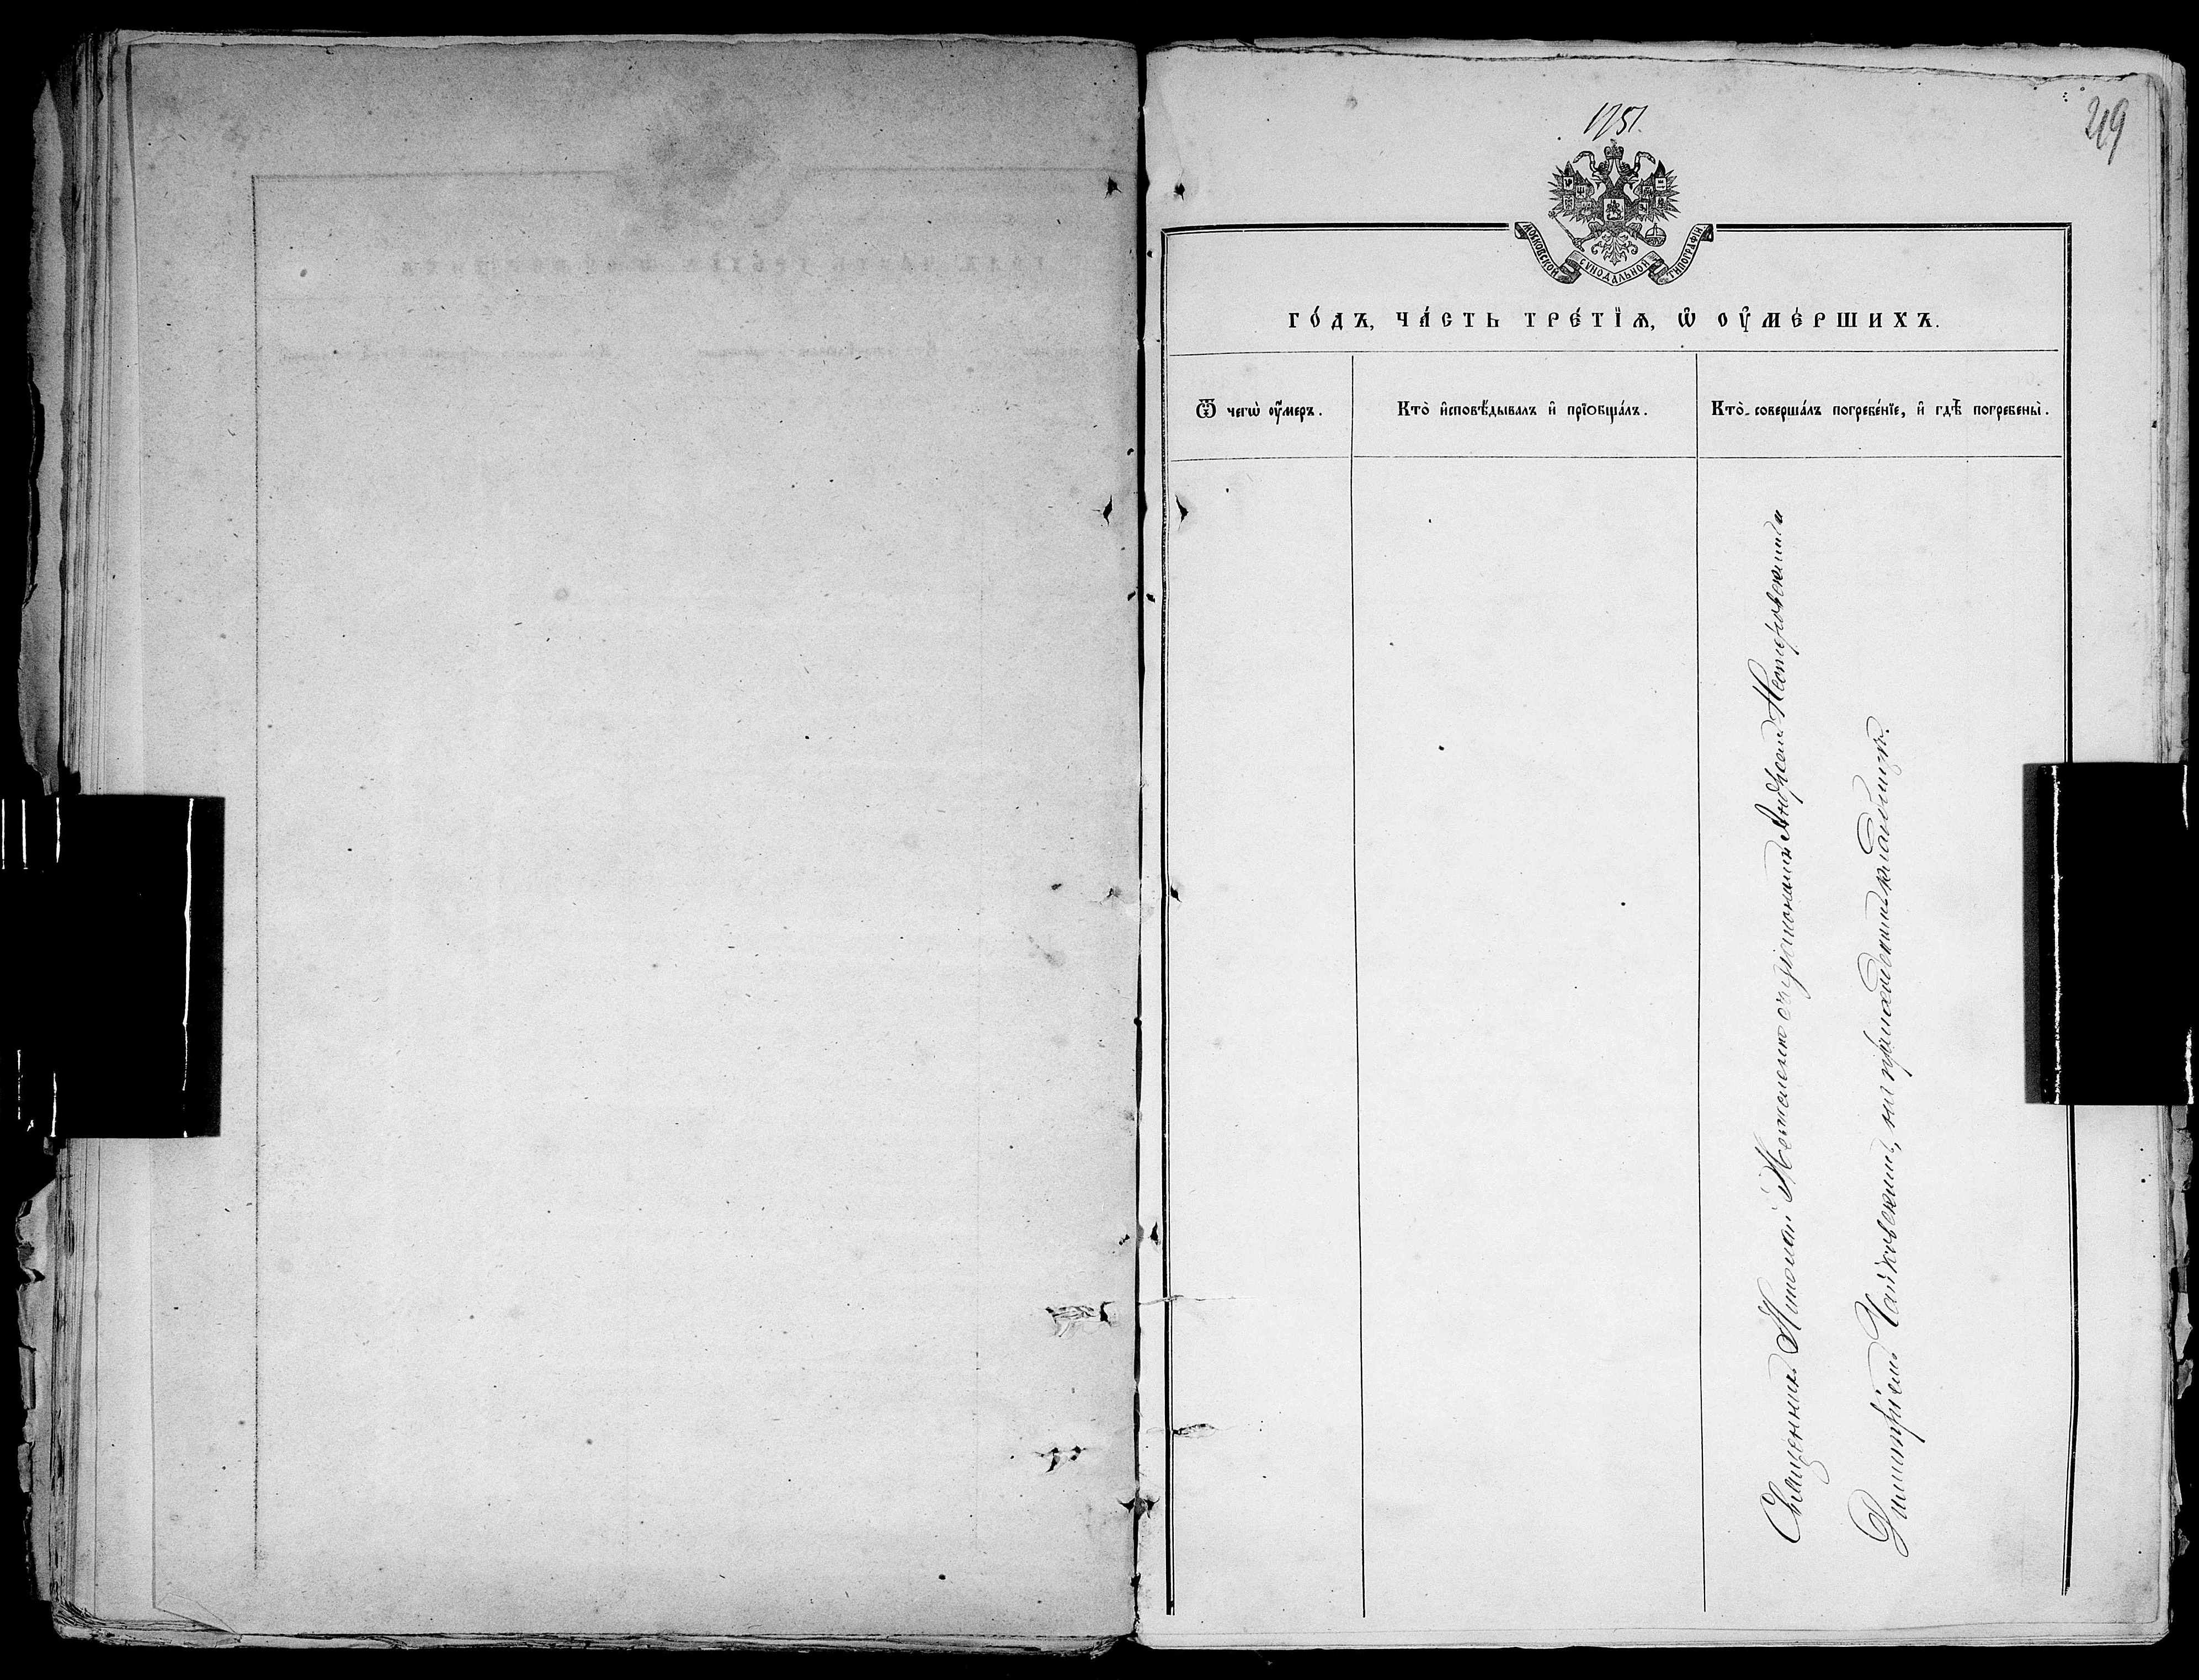 1151.
249
МОСКОВСКОЙ СѴНОДАЛЬНОЙ ТИПОГРАФІИ
ГО́ДЪ, ЧА́СТЬ ТРЕ́ТЇѦ, Ѽ ОУ҆МЕ́РШИХЪ.
Ѿ чегѡ̀ оу҆́меръ.
Кто̀ и҆сповѣ́дывалъ и҆ прїѻбща́лъ.
Кто̀ соверша́лъ погребе́нїе, и҆ гдѣ̀ погребены̀.
Священникъ Николай съ діакономъ Андреемъ Нестеровскимъ и
Димитріемъ Чайковскимъ, на приходскомъ кладбищѣ.